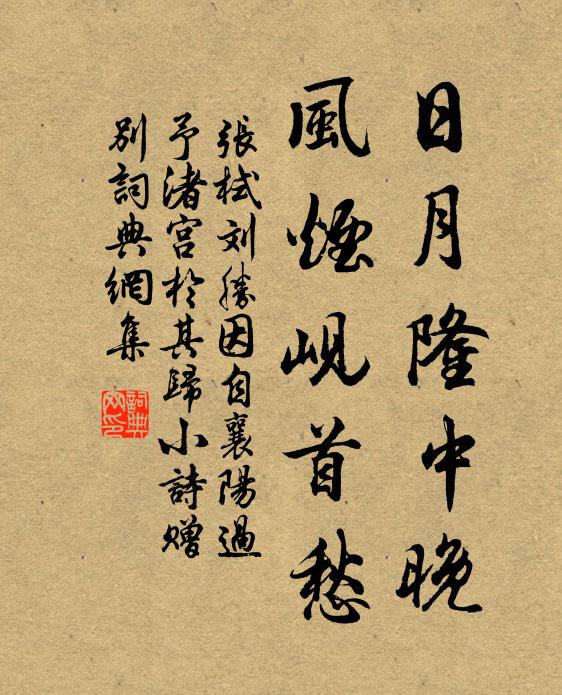 日月隆中晚
風煙峴首愁
張栻刘勝因自襄陽過
予渚宫於其歸小詩贈
别詞典網集
詞典网印